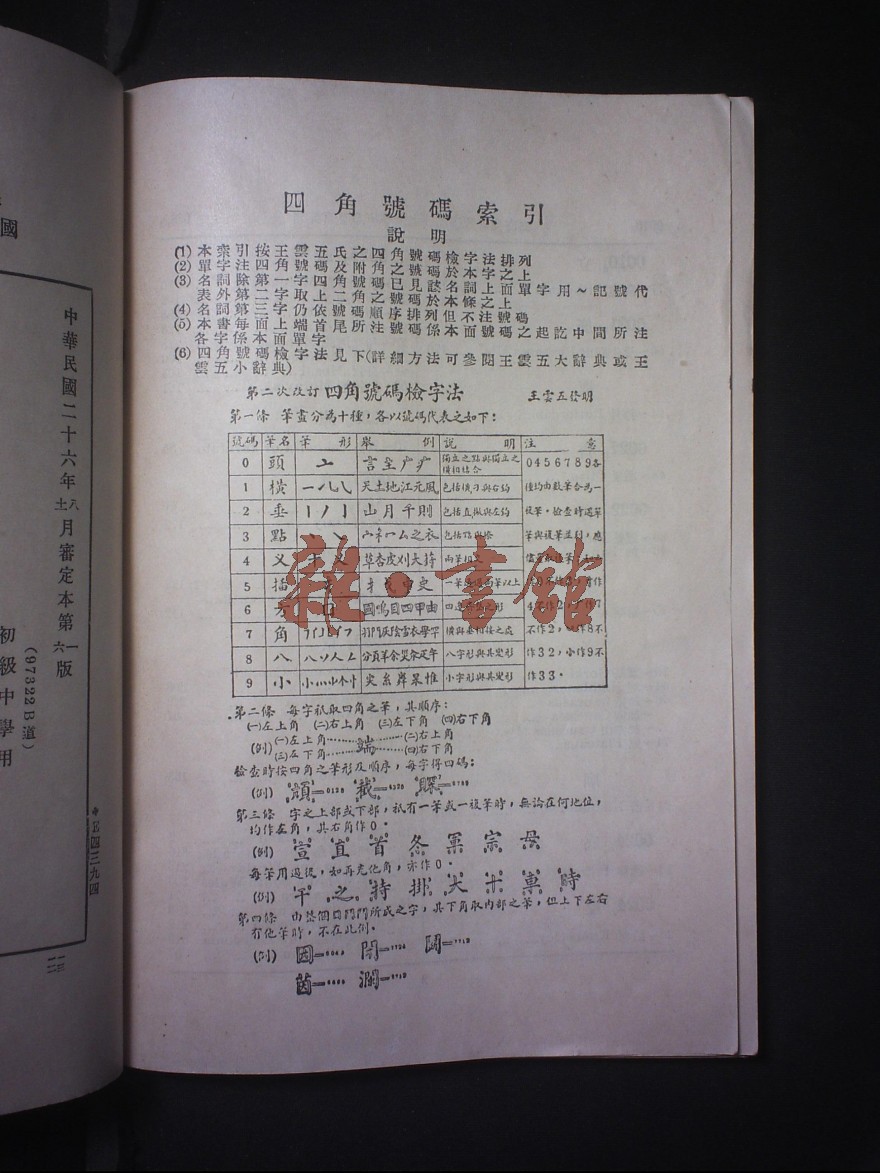 四角號碼索引
說明
(1) 本索引按王雲五氏之四角號碼檢字法排列
(2) 單字注四角號碼及附角之號碼於本字之上
(3) 名詞除第一字四角號碼已見該名詞上面單字用～記號代
表外第二字取上二角之號碼於本條之上
(4) 名詞第三字仍依號碼順序排列但不注號碼
(5) 本書每面上端首尾所注號碼係本面號碼之起訖中間所注
各字係本面單字
(6) 四角號碼檢字法見下(詳細方法可參閱王雲五大辭典或王
雲五小辭典)
第二次改訂 四角號碼檢字法 王雲五發明
第一條 筆畫分為十種，各以號碼代表之如下：
號碼 筆名 筆形 舉例 說明 注意
0 頭 亠 言主广疒 獨立之點與獨立之橫相結合
1 橫 天土地江元風 包括橫刁與右鈎
2 垂 山月千則 包括直撇與左鈎
3 點
4 叉 草杏皮刈大葑
5 插
6 方 國鳴目四甲由
7 角 橫與垂相接之處
8 八 八ソ人 八字形與其變形
9 小 尖糸舜杲惟 小字形與其變形
0456789各
種均由數筆合為一
複筆。檢查時遇單
筆與複筆並列，應
第二條 每字祇取四角之筆，其順序：
(一)左上角 (二)右上角 (三)左下角 (四)右下角
(例) (一)左上角 端 (二)右上角
(三)左下角 (四)右下角
檢查時按四角之筆形及順序，每字得四碼：
(例) 顏=0128 截=4325
第三條 字之上部或下部，祇有一筆或一複筆時，無論在何地位，
均作左角，其右角作0。
(例) 宣 直 首 冬 軍 宗 母
每筆用過後，如再充他角，亦作0。
(例) 干 之 持 排 大 十 車 時
第四條 由整個囗門鬥所成之字，其下角取內部之筆，但上下左右
有他筆時，不在此例。
(例) 因 閉 鬭
茵 瀾
雜·書館
中華民國二十六年八月審定本第一版
(97322B道)
初級中學用
國